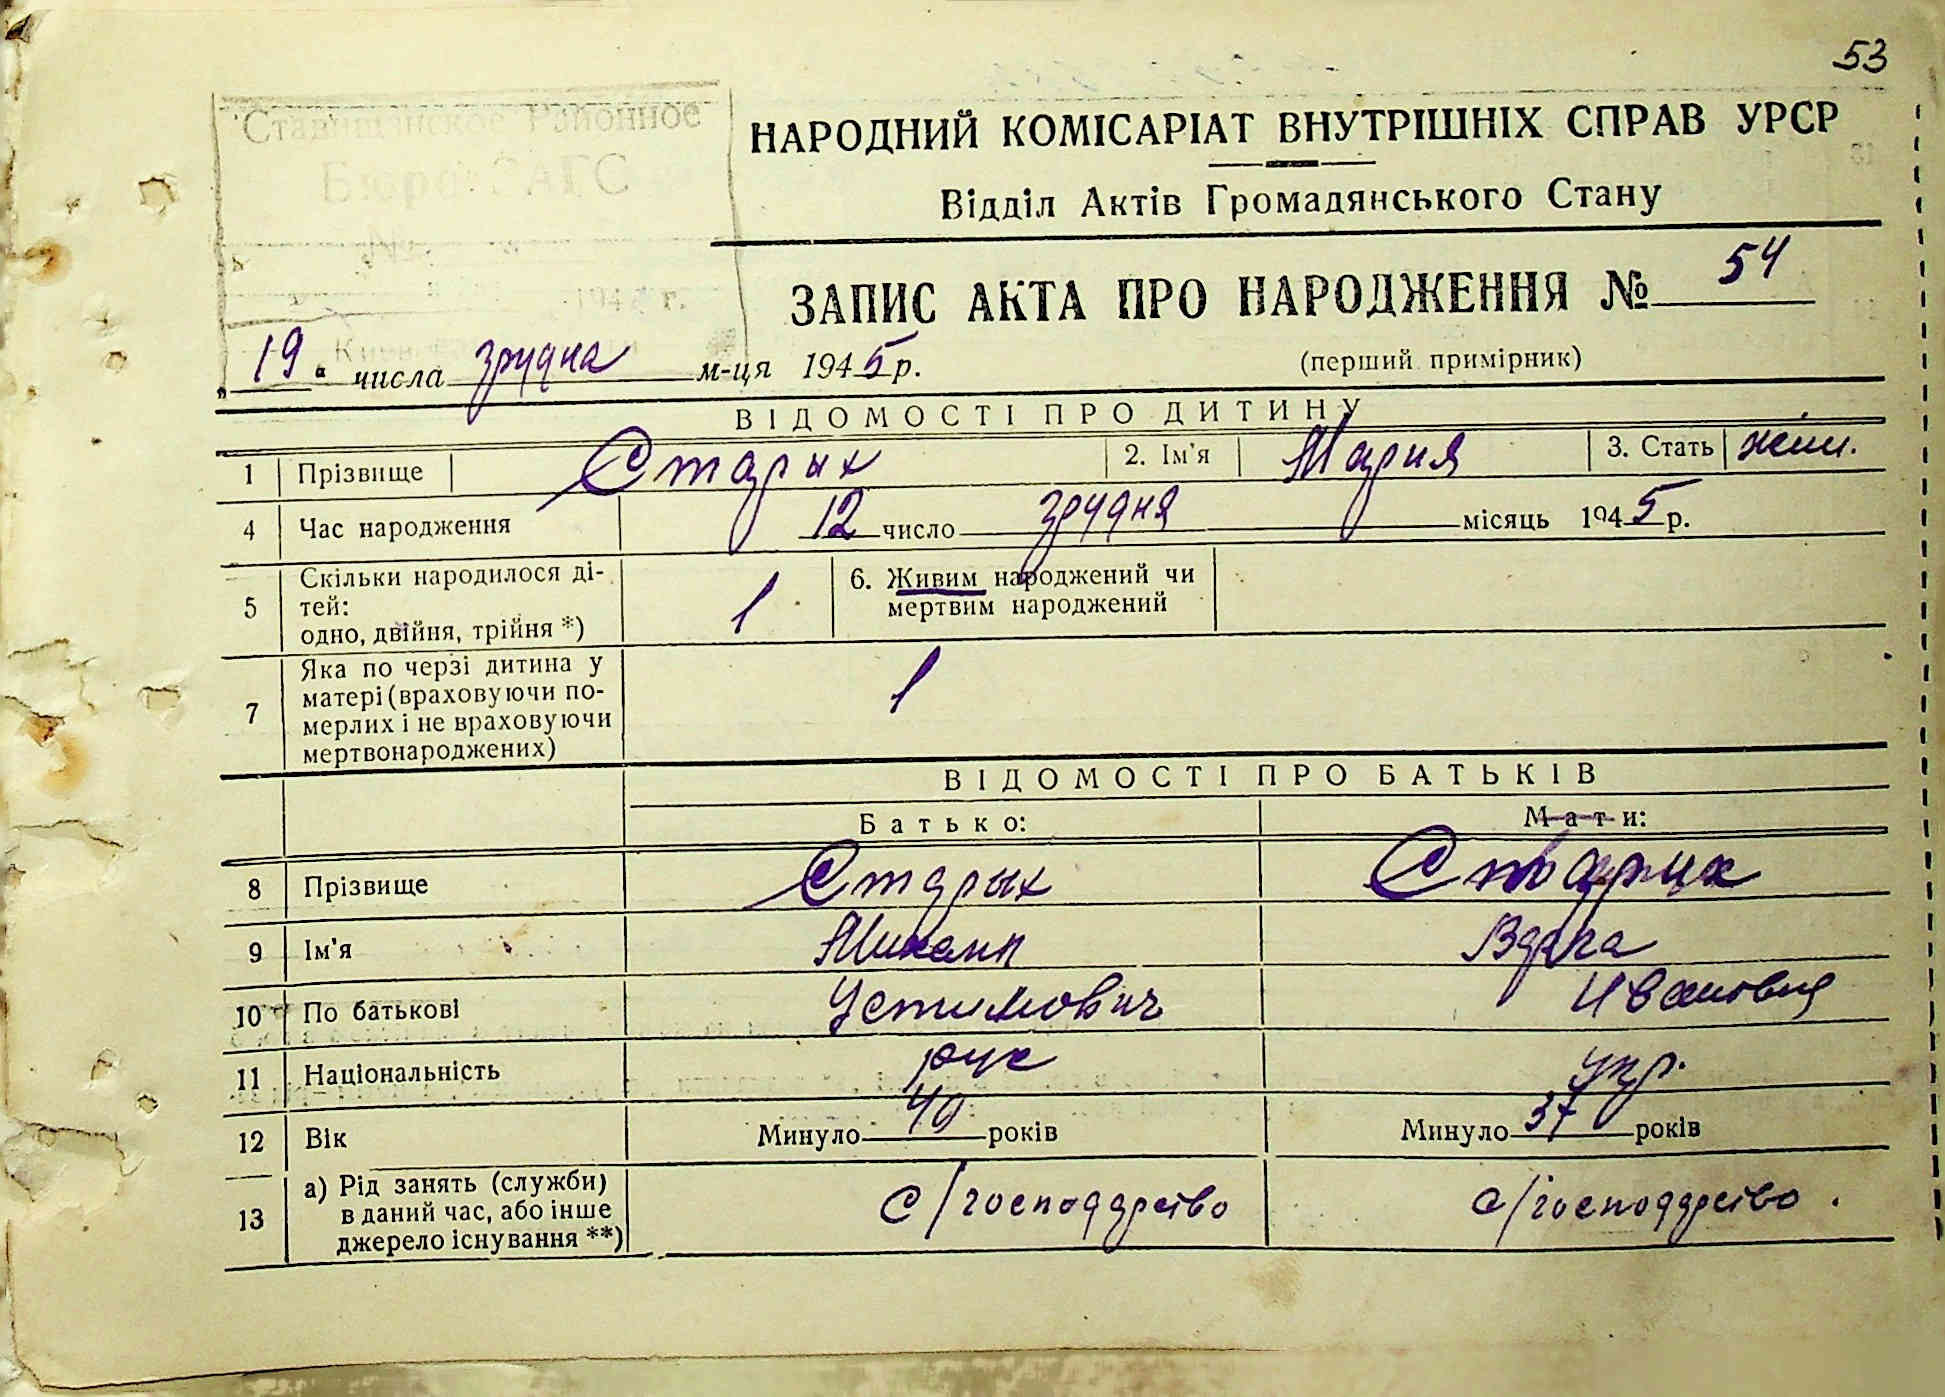 53
Ставищанское Районное
Бюро ЗАГС
№
194 г.
НАРОДНИЙ КОМІСАРІАТ ВНУТРІШНІХ СПРАВ УРСР
Відділ Актів Громадянського Стану
ЗАПИС АКТА ПРО НАРОДЖЕННЯ № 54
(перший примірник)
„19“ числа грудна м-ця 1945 р.
ВІДОМОСТІ ПРО ДИТИНУ
1 Прізвище Старых 2. Ім'я Мария 3. Стать жін.
4 Час народження 12 число грудня місяць 1945 р.
5 Скільки народилося ді-
тей:
одно, двійня, трійня *) 1 6. Живим народжений чи
мертвим народжений
7 Яка по черзі дитина у
матері (враховуючи по-
мерлих і не враховуючи
мертвонароджених) 1
ВІДОМОСТІ ПРО БАТЬКІВ
Батько: Мати:
8 Прізвище Старых
9 Ім'я Михаил
10 По батькові Устимович Ивановна
11 Національність рус укр.
12 Вік Минуло 40 років Минуло 37 років
13 а) Рід занять (служби)
в даний час, або інше
джерело існування **) с/господарство с/господарство.